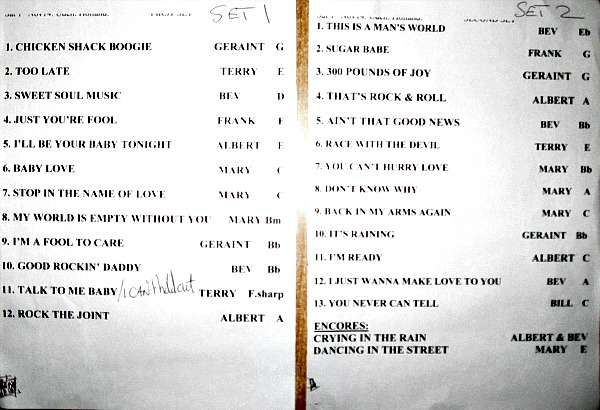 SET 1
FIRST SET
1. CHICKEN SHACK BOOGIE GERAINT G
2. TOO LATE TERRY E
3. SWEET SOUL MUSIC BEV D
4. JUST YOU'RE FOOL FRANK F
5. I'LL BE YOUR BABY TONIGHT ALBERT E
6. BABY LOVE MARY C
7. STOP IN THE NAME OF LOVE MARY C
8. MY WORLD IS EMPTY WITHOUT YOU MARY Bm
9. I'M A FOOL TO CARE GERAINT Bb
10. GOOD ROCKIN' DADDY BEV Bb
11. TALK TO ME BABY/I CAN'T hold out TERRY F.sharp
12. ROCK THE JOINT ALBERT A
SET 2
SECOND SET
1. THIS IS A MAN'S WORLD BEV Eb
2. SUGAR BABE FRANK G
3. 300 POUNDS OF JOY GERAINT G
4. THAT'S ROCK & ROLL ALBERT A
5. AIN'T THAT GOOD NEWS BEV Bb
6. RACE WITH THE DEVIL TERRY E
7. YOU CAN'T HURRY LOVE MARY Bb
8. DON'T KNOW WHY MARY A
9. BACK IN MY ARMS AGAIN MARY C
10. IT'S RAINING GERAINT Bb
11. I'M READY ALBERT C
12. I JUST WANNA MAKE LOVE TO YOU BEV A
13. YOU NEVER CAN TELL BILL C
ENCORES:
CRYING IN THE RAIN ALBERT & BEV
DANCING IN THE STREET MARY E